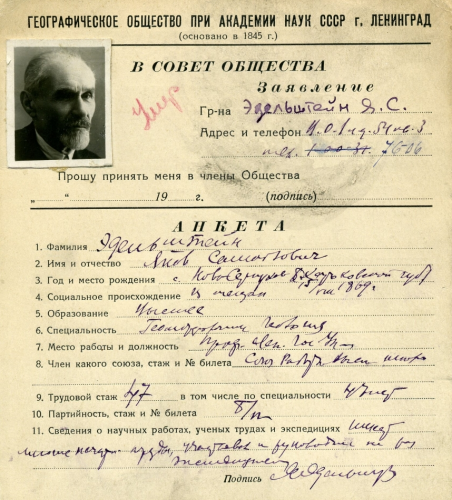 ГЕОГРАФИЧЕСКОЕ ОБЩЕСТВО ПРИ АКАДЕМИИ НАУК СССР г. ЛЕНИНГРАД
(основано в 1845 г.)
В СОВЕТ ОБЩЕСТВА
Заявление
Умер
Гр-на Эдельштейн Я. С.
Адрес и телефон В. О. 1 кв. 3
тел. 76-06
Прошу принять меня в члены Общества
„ “ 19 г. (подпись)
АНКЕТА
1. Фамилия Эдельштейн
2. Имя и отчество Яков Самойлович
3. Год и место рождения с. Харьковской губ
1869 г.
4. Социальное происхождение из мещан
5. Образование высшее
6. Специальность Геоморфология Геология
7. Место работы и должность Проф. Лен. Гос. Ун-та
8. Член какого союза, стаж и № билета Союз Работн. Высш. школы
9. Трудовой стаж 47 в том числе по специальности 47 лет
10. Партийность, стаж и № билета б/п
11. Сведения о научных работах, ученых трудах и экспедициях имеет
многие печатн. труды, участвовал и руководил
экспедицией
Подпись ЯЭдельштейн